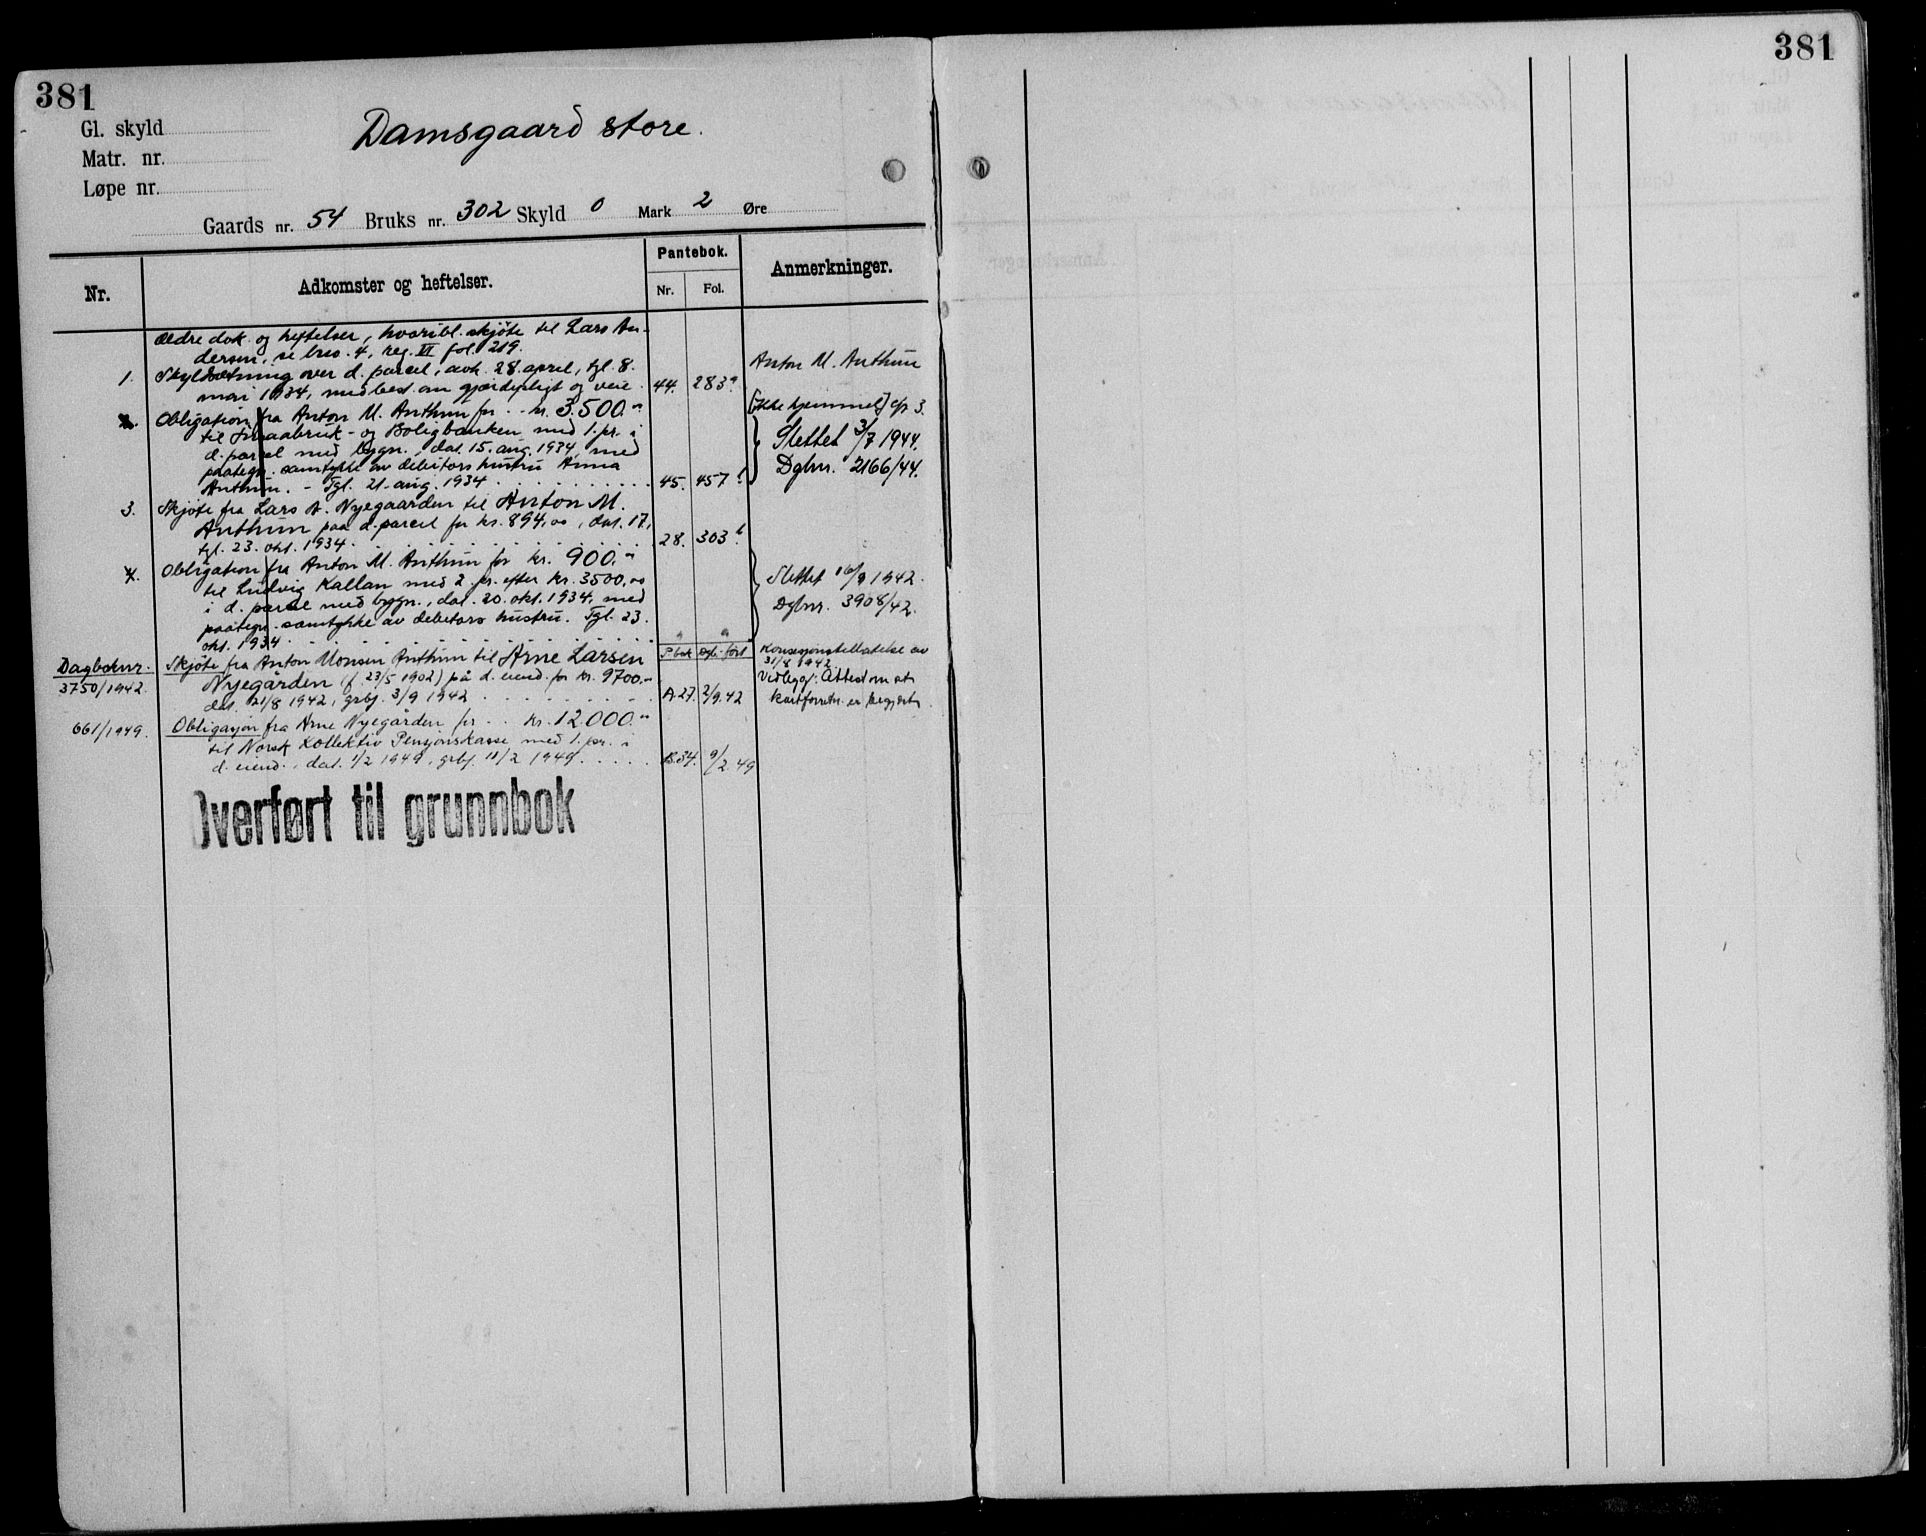 381
381
Gl. skyld
Matr. nr.
Løpe nr.
Damsgaard store.
Gaards nr. 54 Bruks nr. 302 Skyld 0 Mark 2 Øre
Nr.
Adkomster og heftelser.
Pantebok.
Nr. Fol.
Anmerkninger.
Ældre dok. og heftelser, hvoribl. skjøte til Lars An-
dersen, se brno. 4, reg. VI fol. 219.
1. Skyldsætning over d. parcel, avh. 28. april, tgl. 8.
mai 1934, med best. om gjærdepligt og veie. 44. 283a.
Anton M. Anthun
[Ikke hjemmel] cfr 3.
2. Obligation fra Anton M. Anthun for .. kr. 3.500.-
til Smaabruk- og Boligbanken med 1. pr. i
d. parcel med bygn., dat. 15. aug. 1934, med
paategn. samtykke av debitors hustru Anna
Anthun. - Tgl. 21. aug. 1934 45. 457
Slettet 3/7 1944.
Dgbnr. 2166/44.
3. Skjøte fra Lars A. Nyegaarden til Anton M.
Anthun paa d. parcel for kr. 894,00, dat. 17,
tgl. 23. okt. 1934. 28. 303b.
4. Obligation fra Anton M. Anthun for kr. 900.-
til Ludvig Kallan med 2. pr. efter kr. 3500,00
i d. parcel med bygn., dat. 20. okt. 1934, med
paategn. samtykke av debitors hustru. Tgl. 23.
okt. 1934 " "
Slettet 16/9 1942.
Dgbnr. 3908/42.
Dagboknr. P.bok Dgb. ført
3750/1942. Skjøte fra Anton Monsen Anthun til Arne Larsen
Nyegården (f. 23/5 1902) på d. eiend. for kr. 9700.-
dat. 21/8 1942, grbf. 3/9 1942 A.27. 2/9.42
Konsesjonstillatelse av
31/8 1942
Vedlegg: Attest om at
kartforretn. er begjært.
661/1949. Obligasjon fra Arne Nyegården for .. kr. 12.000.-
til Norsk Kollektiv Pensjonskasse med 1. pr. i
d. eiend., dat. 1/2 1949, grbf. 11/2 1949. B.34. 9/2 49
Overført til grunnbok